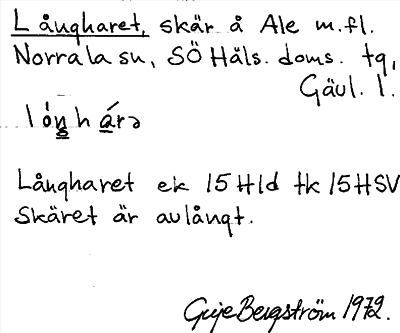 Långharet, skär å Ale m.fl.
Norrala sn, SÖ Häls. doms. tg,
Gävl. l.
lóṉ há̱rə
Långharet ek 15 H1d tk 15 HSV
Skäret är avlångt.
Bergström 1972.